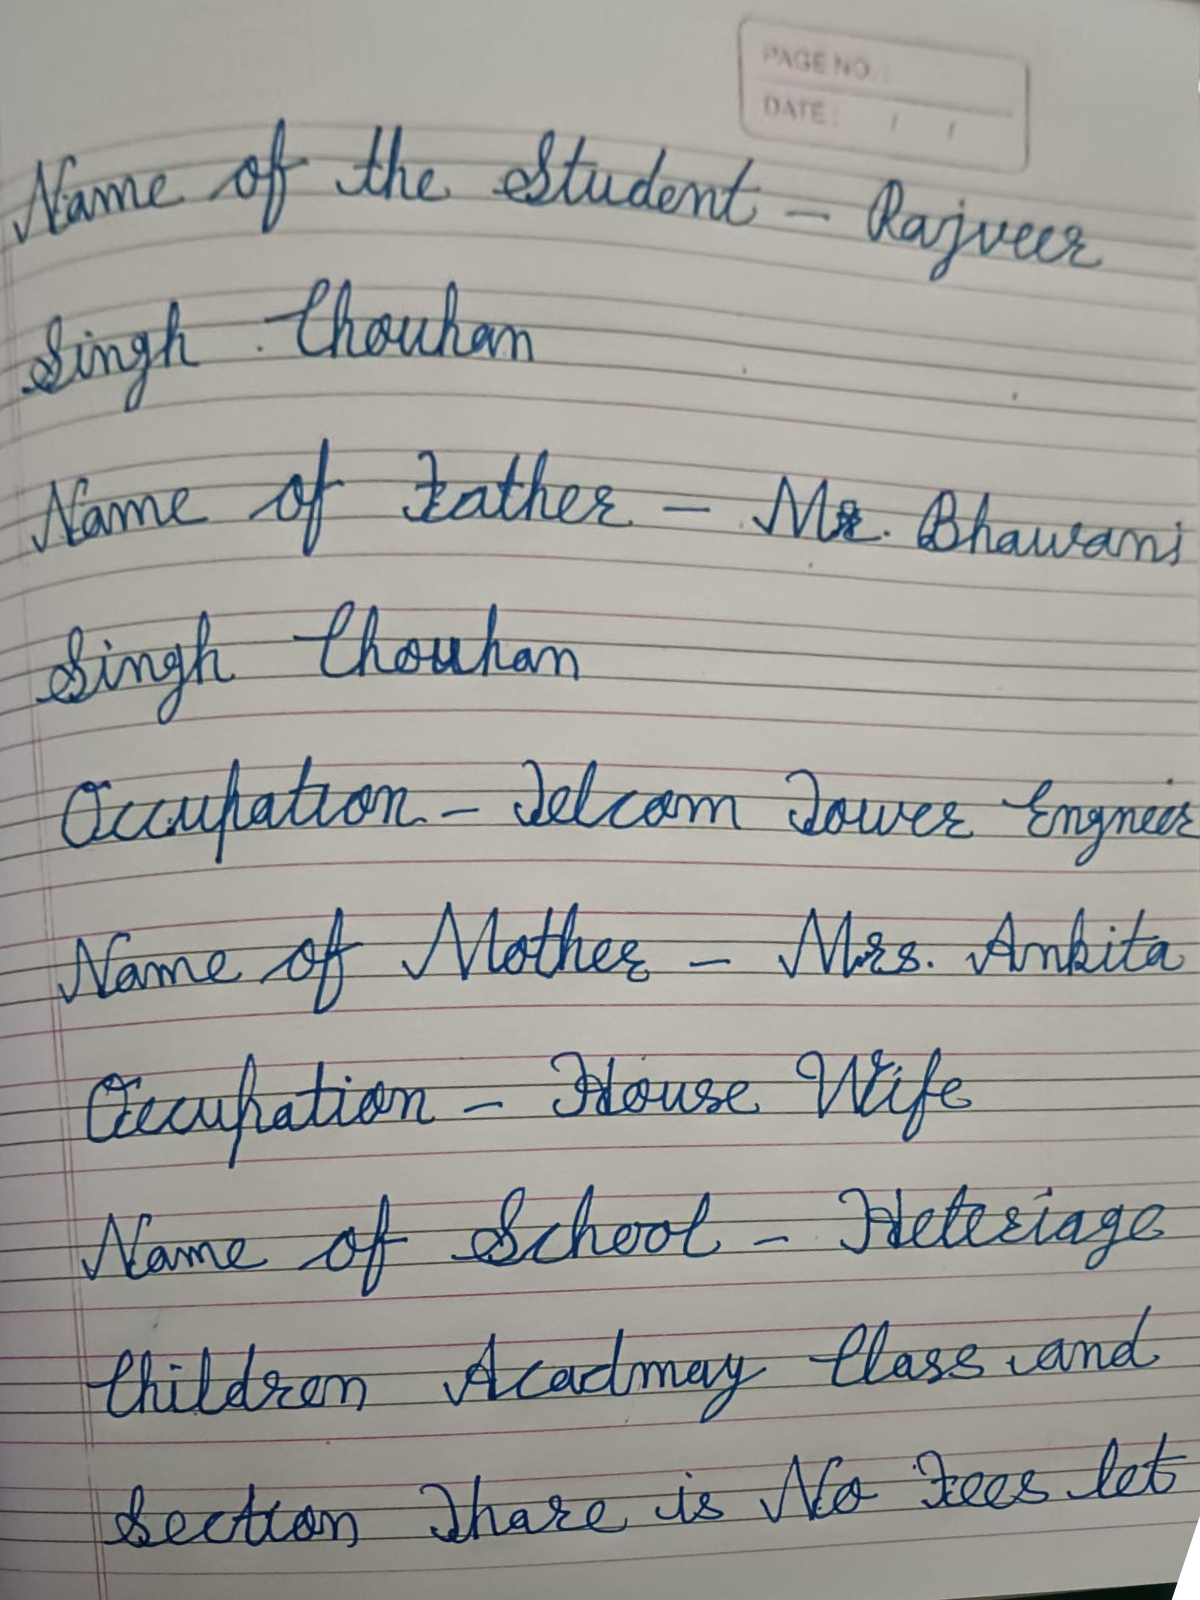 PAGE NO. :
DATE : / /
Name of the Student - Rajveer
Singh Chouhan
Name of Father - Mr. Bhawani
Singh Chouhan
Occupation - Telcom Tower Engneer
Name of Mother - Mrs. Ankita
Occupation - House Wife
Name of School - Heteriage
Children Acadmay Class and
Section Thare is No Fees let